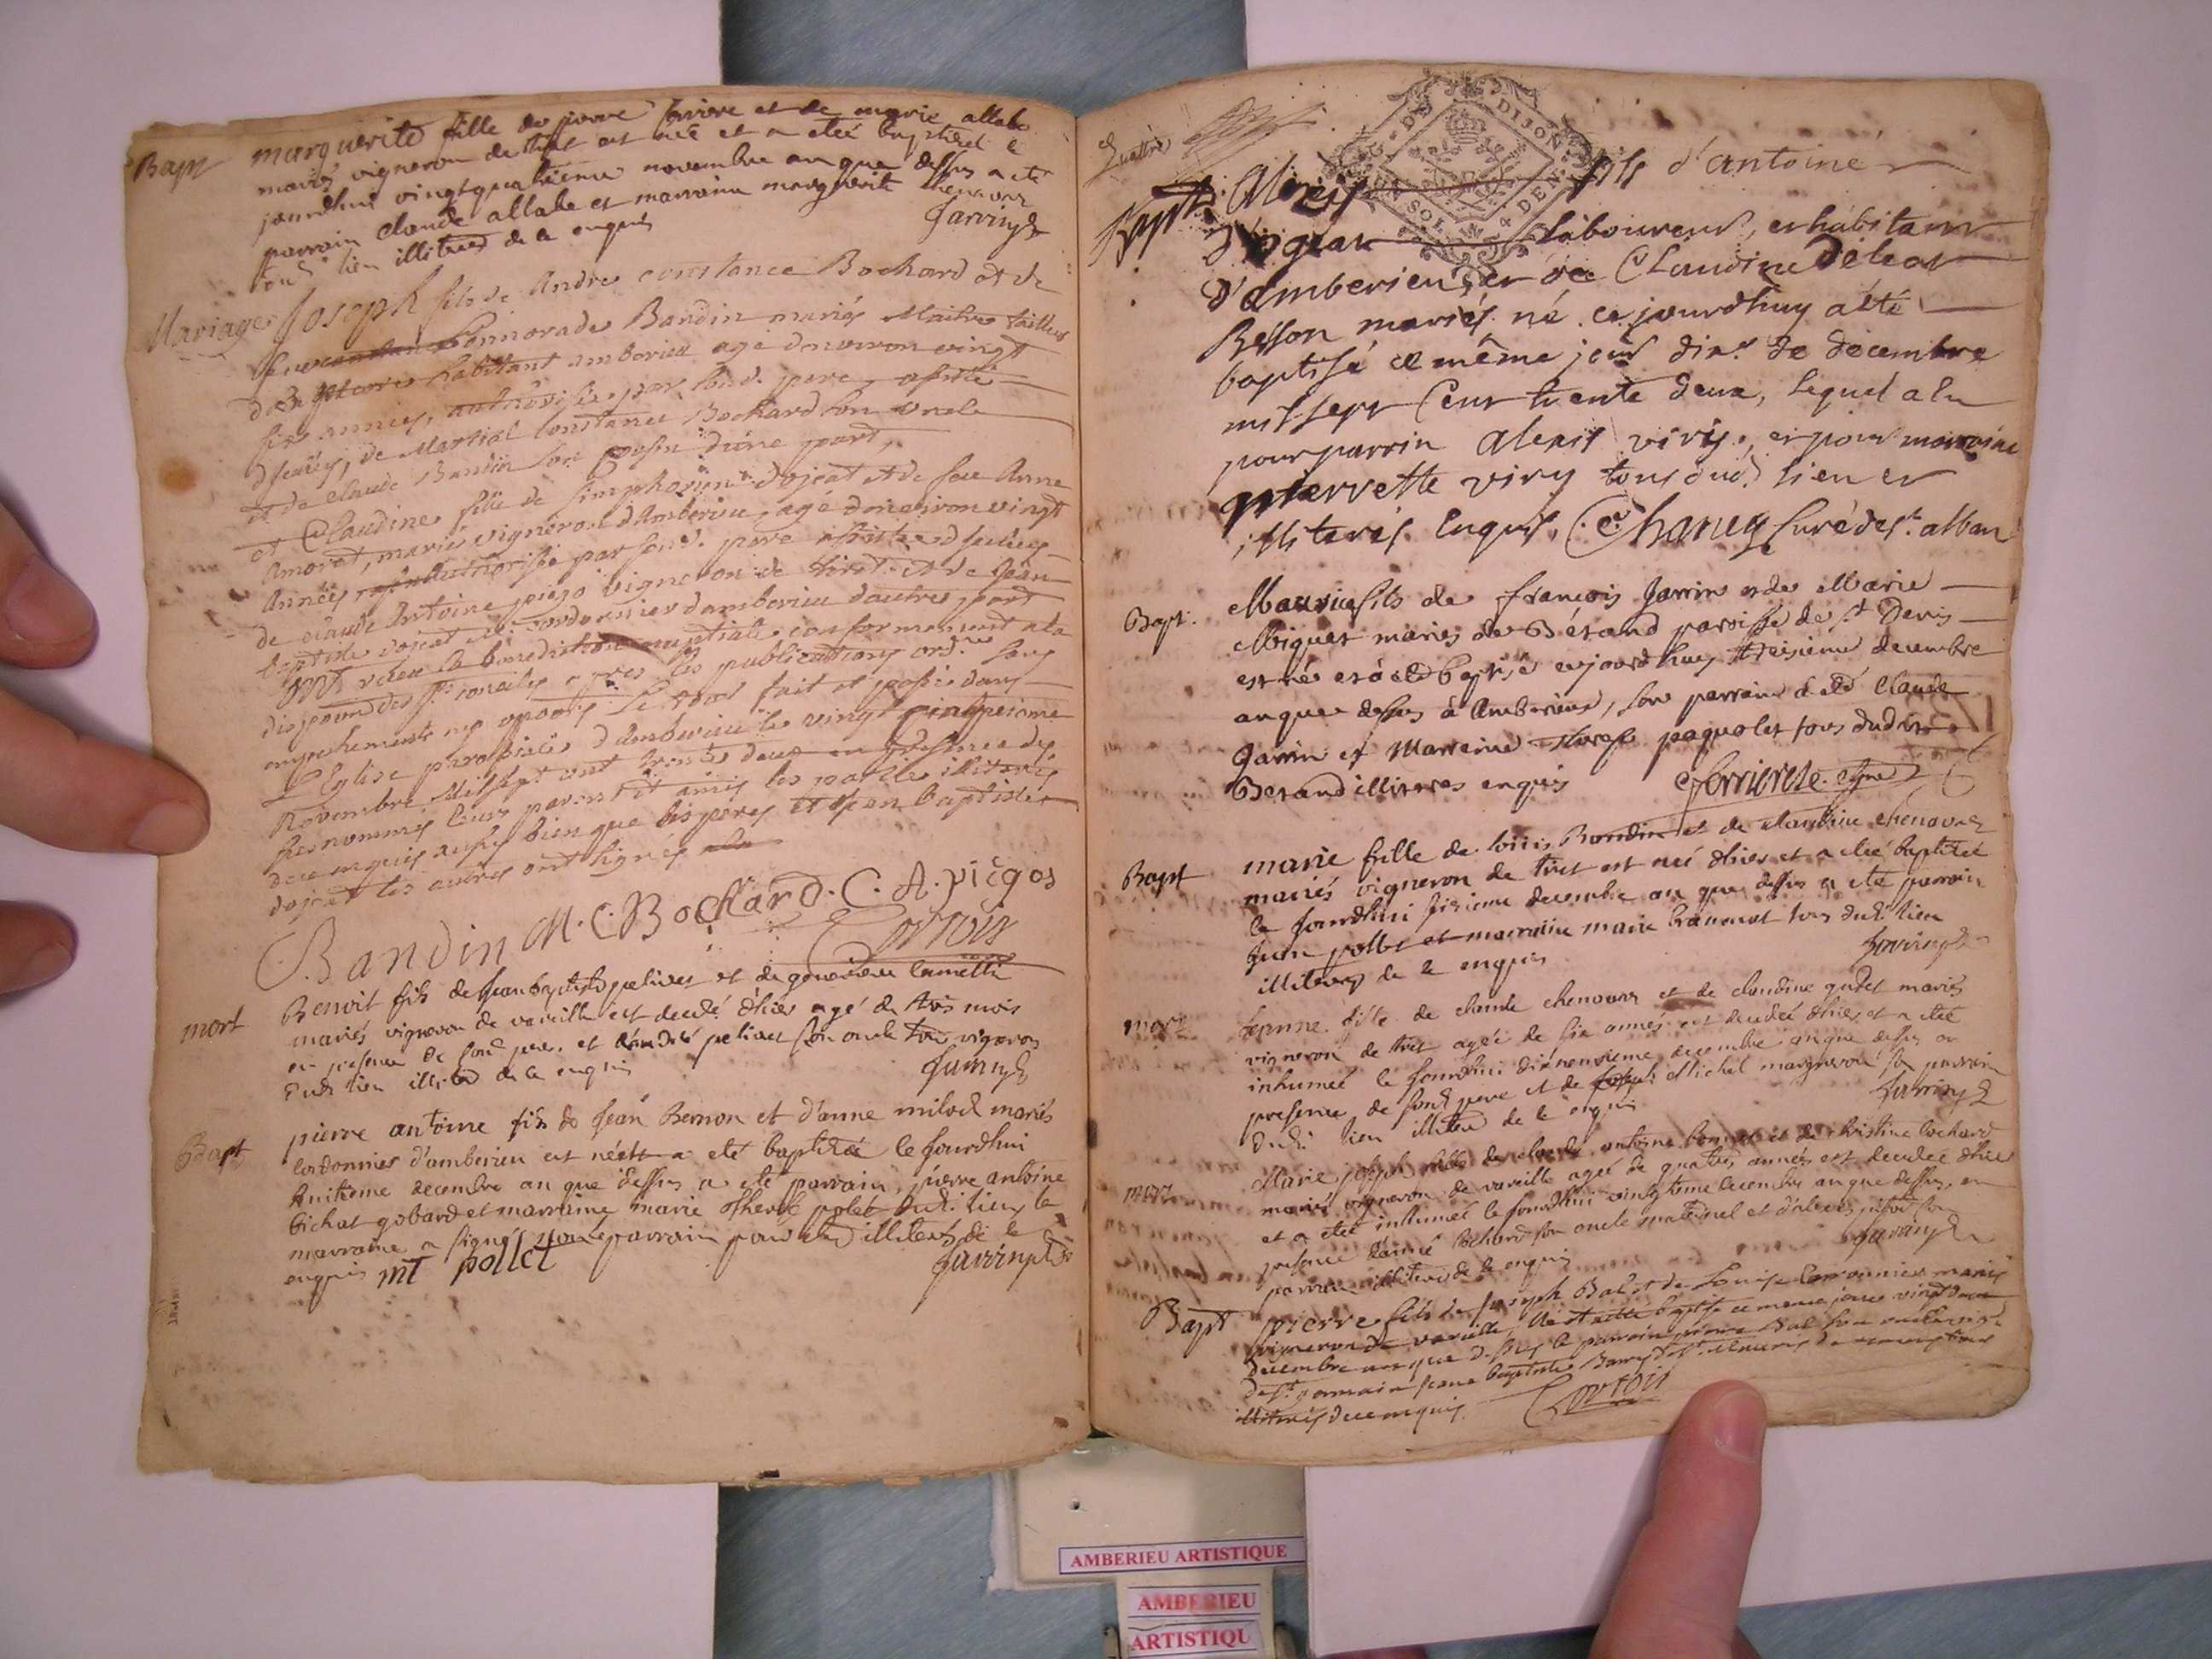 Bapt
marguerite fille de pierre et de marie allabe
mariés vigneron de tiret est née et a eteé baptiseé le
jourdhui vingtquatrieme novembre an que dessus a eté
parrain claude allabe et marraine marguerite chenavas
tous lieu illiteres de ce enquis
Jarrin
Mariage
Joseph fils de Andre constance Bochard et de
Bandin mariés Maitre tailleur
habitant amberieu agé denviron vingt
six années, authorisé par sond. pere, assisté
d'iceluy, de Martial Constance Bochard son oncle
et de claude Bandin son cousin d'une part,
et Claudine fille de simphorien dojeat et de feu Anne
Amoret, mariés vigneron d'Amberieu, agé denviron vingt
Années authorisée par sond. pere assistee d'iceluy
de claude Antoine picgo vigneron de tiret et de Jean
baptiste dojeat cordonnier damberieu dautre part
ont reçu la benediction nuptiale conformement a la
apres les publications ord.res sans
empechement ny oppôon. Le tout fait et passé dans
L'Eglise paroissielle d'Amberieu le vingt cinquieme
Novembre Mil sept cent trente deux en presence des
susnommés leurs parents et amis les parties illiterés
de ce enquis aussy bien que les peres et Jean baptiste
dojeat les autres ont signés
Bandin M. C. Bochard. C. A. picgos
Cortois
mort
Benoit fils de Jean baptiste pelisset et de genevieve
mariés vigneron de vareille est decedé dhier agé de trois mois
en presence de sond pere. et d'andré pelisset son oncle vigneron
dud: lieu illiteré de ce enquis
Jarrin
Bapt
pierre antoine fils de Jean Bernon et d'anne milod mariés
Cordonnier d'amberieu est né et a eté baptizé le Jourdhui
huitieme decembre an que dessus a eté parrain, pierre antoine
bichat gobard et marraine marie therese polet dud: lieu la
marraine a signé non le parrain pour etre illiteré de ce
enquis mt pollet
Jarrin
quatre
DE DIJON
SOL. & DEN.
Bapt. Alexis fils d'antoine
Dogeat laboureur, et habitant
d'amberieu, et de Claudine Deleat
Besson mariés né cejourdhuy a été
baptisé ce même jour dix.e de decembre
mil sept cent trente deux, lequel a eu
pour parrin alexis viry, et pour marraine
pierrette viry tous dud.t lieu et
illiterés. Enquis, Chaney Curé de s.t alban
Bapt.
Maurice fils de françois Jarrin et de Marie
Miguet mariés de Bétand paroisse de S.t Denis
est né et a eté baptisé cejourd'huy treisieme decembre
anque dessus à Amberieux, son parrain a eté Claude
Jarrin et Marreine paquolet tous dudit
Betand illiteres enquis
Bapt
marie fille de loüis Bondin et de claudine chenavas
mariés vigneron de tiret est neé dhier et a eteé baptiseé
le Jourdhui sizieme decembre an que dessus a eté parrain
Jean pollet et marraine marie tous dud: lieu
illiteres de ce enquis
Jarrin
mort
Jeanne fille de claude chenavas et de claudine gudet mariés
vigneron de tiret ageé de six annés est decedeé dhier et a eteé
inhumeé le Jourdhui dixneuvieme decembre anque dessus en
presence de sond pere et de Michel margueron son parrain
dud: lieu illiteré de ce enquis
Jarrin
mort
Marie joseph fille de claude antoine bonnet et de christine Cochard
mariés vigneron de vareille ageé de quatre annés est decedeé dhier
et a eteé inhumeé le Jourdhui vingtieme decembre anque dessus, en
presence d'aimé Cochard son oncle maternel et
parrain illiteres de ce enquis
Jarrin
Bapt
pierre fils de Joseph Bal et de Louise mariés
vigneron de vareille, né et a eté baptisé ce meme jour vingt deux
decembre an que dessus le parrain pierre Bal son oncle
de St germain
illiterés de ce enquis.
Cortois
AMBERIEU ARTISTIQUE
AMBERIEU
ARTISTIQU